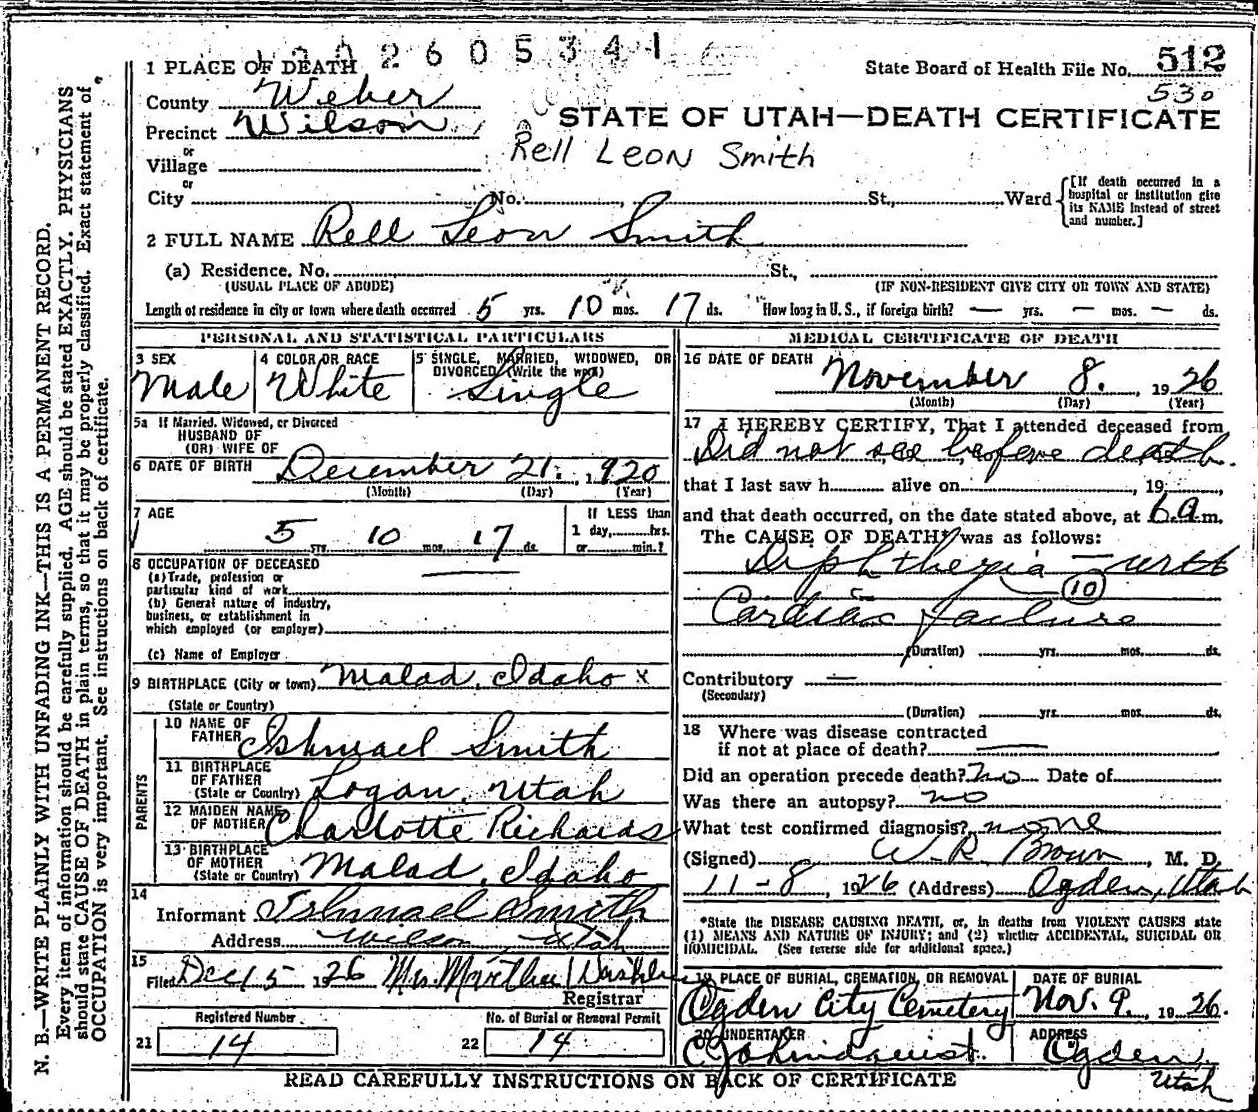 2605341
State Board of Health File No. 512
530
1 PLACE OF DEATH
County Weber
STATE OF UTAH—DEATH CERTIFICATE
Precinct Wilson
or
Village
Rell Leon Smith
or
City No. , St., Ward
[If death occurred in a
hospital or institution give
its NAME instead of street
and number.]
2 FULL NAME Rell Leon Smith
(a) Residence. No. St.,
(USUAL PLACE OF ABODE) (IF NON-RESIDENT GIVE CITY OR TOWN AND STATE)
Length of residence in city or town where death occurred 5 yrs. 10 mos. 17 ds. How long in U. S., if foreign birth? — yrs. — mos. — ds.
PERSONAL AND STATISTICAL PARTICULARS
3 SEX
Male
4 COLOR OR RACE
White
5 SINGLE, MARRIED, WIDOWED, OR
DIVORCED (Write the word)
Single
5a If Married, Widowed, or Divorced
HUSBAND OF
(OR) WIFE OF
6 DATE OF BIRTH December 21, 1920
(Month) (Day) (Year)
7 AGE
5 yrs. 10 mos. 17 ds.
If LESS than
1 day, hrs.
or min.?
8 OCCUPATION OF DECEASED
(a) Trade, profession or
particular kind of work —
(b) General nature of industry,
business, or establishment in
which employed (or employer)
(c) Name of Employer
9 BIRTHPLACE (City or town) Malad, Idaho x
(State or Country)
PARENTS
10 NAME OF
FATHER Ishmael Smith
11 BIRTHPLACE
OF FATHER
(State or Country) Logan, Utah
12 MAIDEN NAME
OF MOTHER Charlotte Richards
13 BIRTHPLACE
OF MOTHER
(State or Country) Malad, Idaho
14
Informant Ishmael Smith
Address Wilson, Utah
15
Filed Dec 15 1926 Mrs.
Registrar
Registered Number
21 14
No. of Burial or Removal Permit
22 14
MEDICAL CERTIFICATE OF DEATH
16 DATE OF DEATH
November 8. 1926
(Month) (Day) (Year)
17 I HEREBY CERTIFY, That I attended deceased from
Did not see before death.
that I last saw h alive on , 19 ,
and that death occurred, on the date stated above, at 6 a.m.
The CAUSE OF DEATH* was as follows:
Diphtheria — with
10
Cardiac failure
(Duration) yrs. mos. ds.
Contributory —
(Secondary)
(Duration) yrs. mos. ds.
18 Where was disease contracted
if not at place of death? —
Did an operation precede death? no Date of
Was there an autopsy? no
What test confirmed diagnosis? none
(Signed) W. R. Brown, M. D.
11-8, 1926 (Address) Ogden, Utah
*State the DISEASE CAUSING DEATH, or, in deaths from VIOLENT CAUSES state
(1) MEANS AND NATURE OF INJURY; and (2) whether ACCIDENTAL, SUICIDAL OR
HOMICIDAL. (See reverse side for additional space.)
19 PLACE OF BURIAL, CREMATION, OR REMOVAL
Ogden City Cemetery
DATE OF BURIAL
Nov. 9. 1926.
20 UNDERTAKER
ADDRESS
Ogden,
Utah
READ CAREFULLY INSTRUCTIONS ON BACK OF CERTIFICATE
N. B.—WRITE PLAINLY WITH UNFADING INK—THIS IS A PERMANENT RECORD.
Every item of information should be carefully supplied. AGE should be stated EXACTLY. PHYSICIANS
should state CAUSE OF DEATH in plain terms, so that it may be properly classified. Exact statement of
OCCUPATION is very important. See instructions on back of certificate.